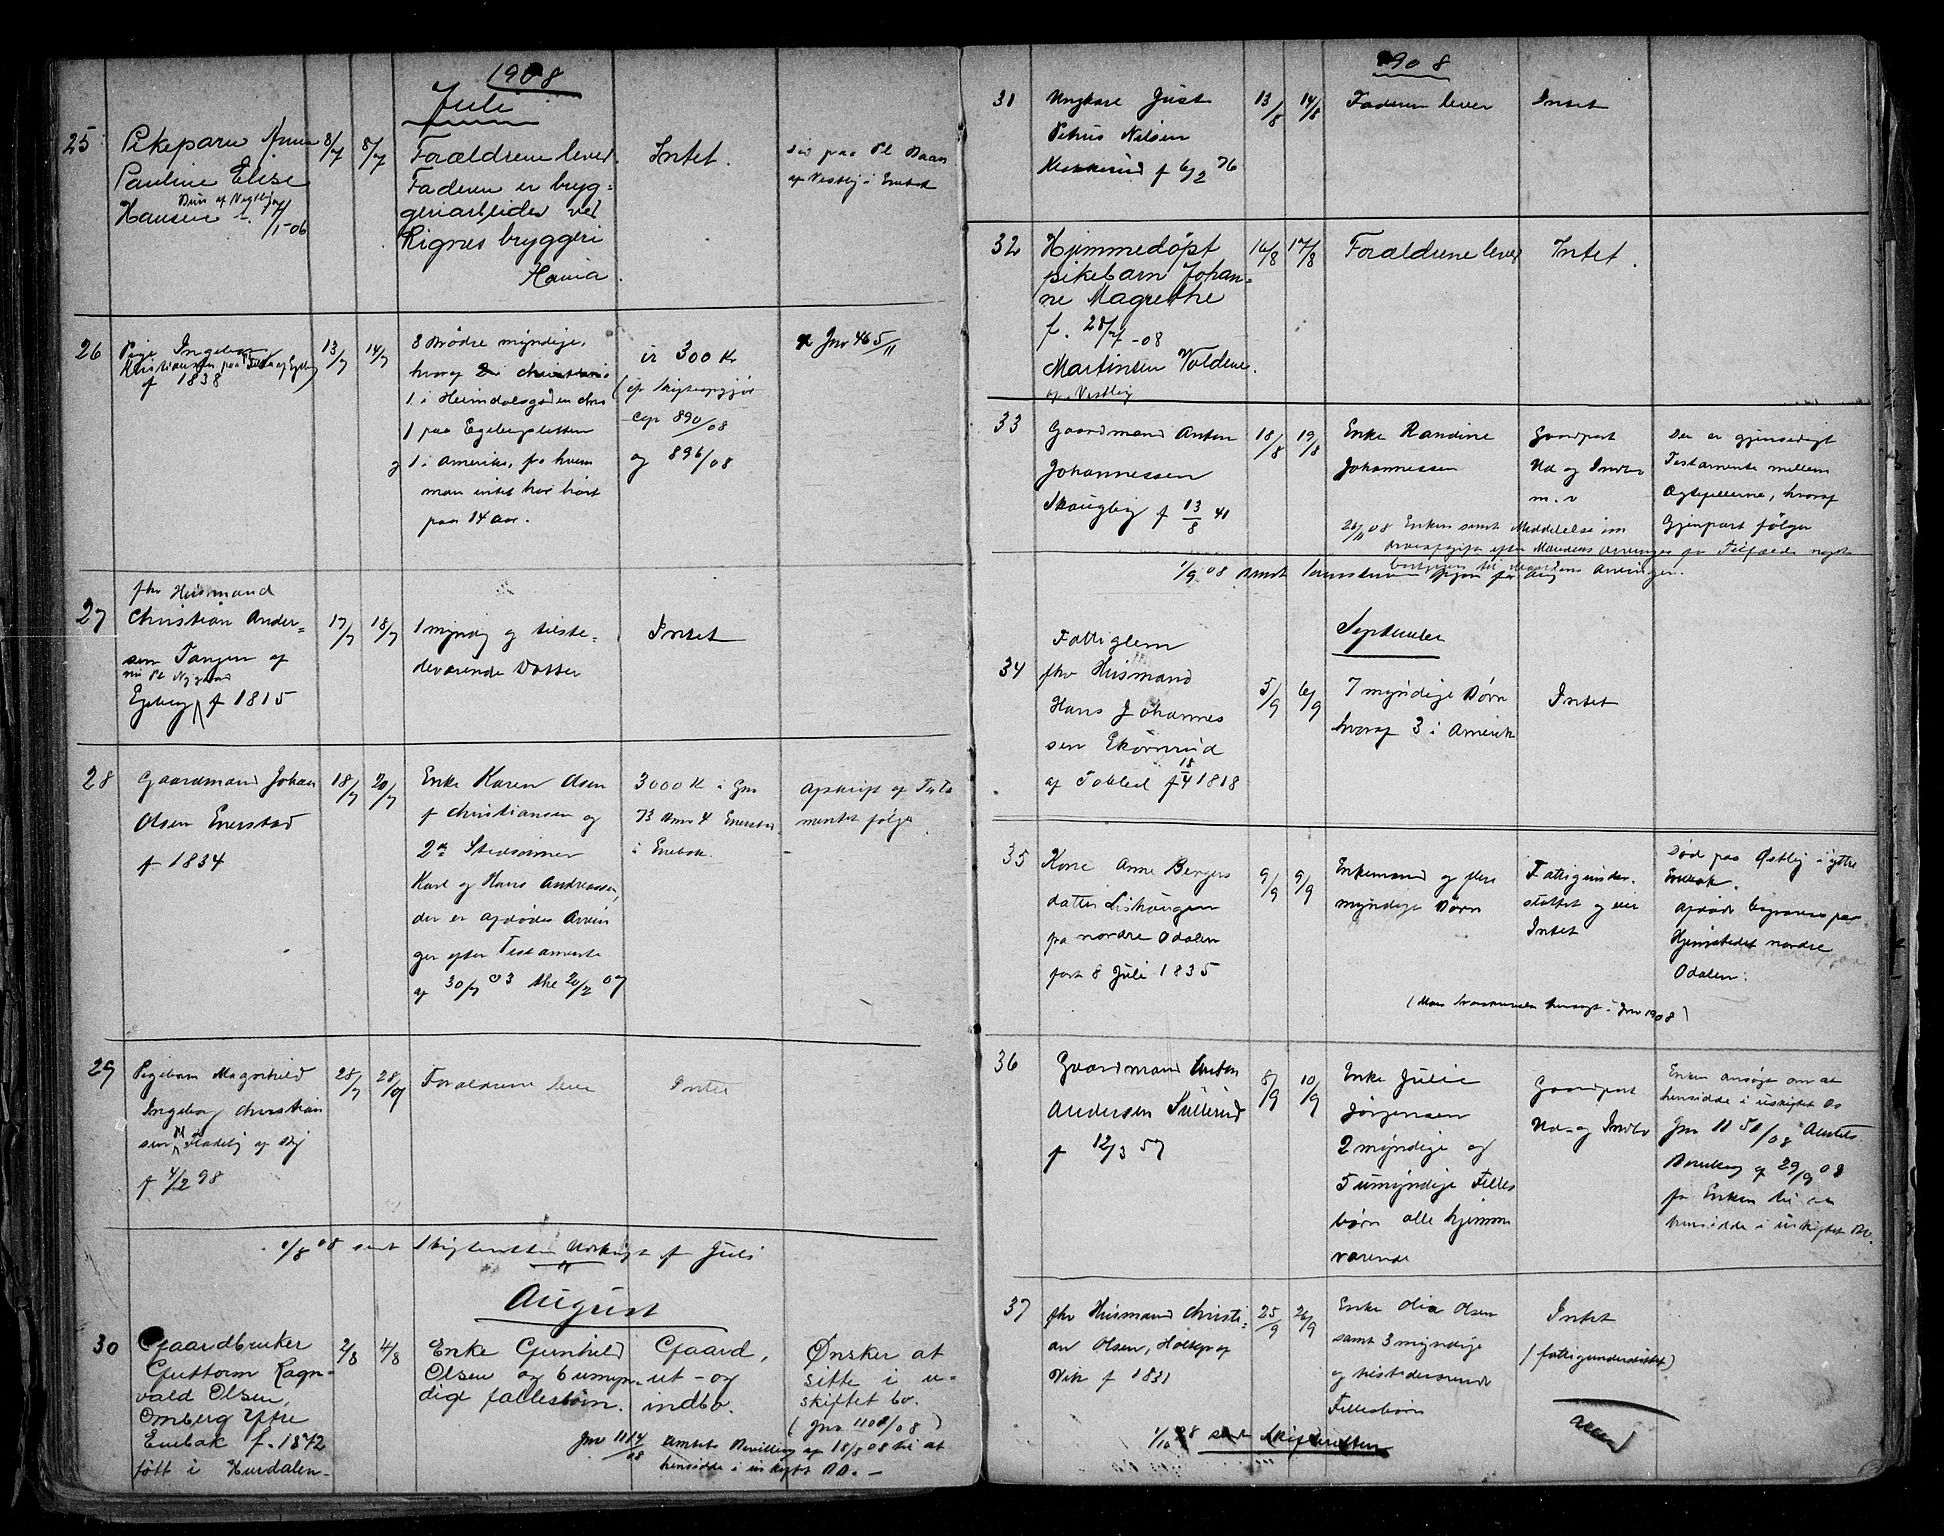 1908
Juli
25
Pikebarn Anna
Pauline Elise
Hansen
8/7
8/7
Forældrene lever.
Faderen er bryg-
geriarbeider ved
Rignes bryggeri
Intet.
død paa Pl
af Vestby i Enebak
26
Pige Ingeborg
Kristiansen paa
f 1838
13/7
14/7
3 Brødre myndige,
hvoraf
1 i Heimdalsgaden Chra
1 paa Egebergsletten
og 1 i Amerika, fra hvem
man intet har hørt
paa 14 Aar.
300 Kr
890/08
og 896/08
Jnr 465/11
27
fhv Husmand
Christian Ander-
sen Tangen af
Egeberg f 1815
17/7
18/7
1 myndig og tilste-
deværende Datter
Intet
28
Gaardmand Johan
Olsen Enerstad
f 1834
18/7
20/7
Enke Karen Olsen
f Christiansen og
2de Stedsønner
Karl og Hans Andreassen,
der er afdødes Arvin-
ger efter Testamente
af 30/7 03 20/2 07
3000 Kr i Gnr
73 Bnr 4 Enerstad
i Enebak.
Afskrift af Testa
mentet følger
29
Pigebarn Magnhild
Ingeborg Christian
sen
f 4/2 98
28/7
28/7
Forældrene lever
Intet
1/8 08 sendt Skifteretten Udskrift f Juli
August
30
Gaardbruker
Guttorm Ragn-
vald Olsen,
Omberg Ytre
Enebak f. 1872
født i Hurdalen
2/8
4/8
Enke Gunhild
Olsen og 6 umyn-
dig fællesbørn.
Gaard,
ut- og
indbo.
Ønsker at
sitte i u-
skiftet bo.
(Jnr 1108/08)
Jnr 1114/08 Amtets Bevilling af 18/8 08 til at
hensidde i uskiftet Bo. -
1908
31
Ungkarl Just
Petrus Nilsen
f 6/2 76
13/8
14/8
Faderen lever
Intet
32
Hjemmedøpt
pikebarn Johan-
ne Magrethe
f. 28/7 -08
Martinsen Voldene.
af Vestby
16/8
17/8
Forældrene lever
Intet.
33
Gaardmand Anton
Johannessen
Skaugby f 13/8 41
18/8
19/8
Enke Randine
Johannessen
Gaardpart
Ud og Indbo
m. v
Der er gjensidigt
Testamente mellem
Ægtefellerne, hvoraf
Gjenpart følger
26/11 08 Enken sendt Meddelelse om
Arveafgift efter Mandens Arvinger
1/9 08 sendt
September
34
Fattiglem
fhv Husmand
Hans Johannes
sen Ekornrud
af Tobbel f 18/4 1818
5/9
6/9
7 myndige Børn
hvoraf 3 i Amerik
Intet
35
Kone Anne Bergers
datter Liskaugen
fra nordre Odalen
født 8 Juli 1835
9/9
9/9
Enkemand og flere
myndige Børn
Fattigunder-
støttet og eier
Intet
Død paa Østby i ytre
Enebak.
Afdøde begraves paa
Hjemstedet nordre
Odalen.
36
Gaardmand Anton
Andersen Sullerud
f 12/3 57
8/9
10/9
Enke Julie
Jørgensen
2 myndige og
5 umyndige Fælles
børn alle hjemme
værende
Gaardpart
Ud- og Indbo
Enken ansøger om at
hensidde i uskiftet Bo
Jnr 1151/08 Amtets
Bevilling af 29/9 08
for Enken til at
hensidde i uskiftet Bo.
37
fhv Husmand Christi-
an Olsen, Holtop af
Vik f 1831
25/9
26/9
Enke Olia Olsen
samt 3 myndige
og tilstedeværende
Fellesbørn
Intet
(fattigunderstøttet)
1/10 08 sendt Skifteretten